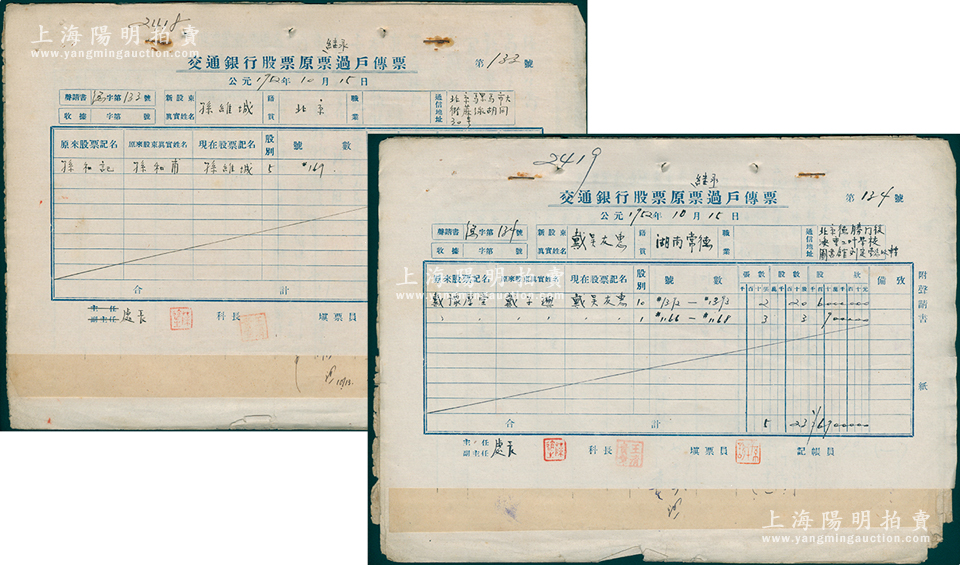 上海陽明拍賣
www.yangmingauction.com
2418
继承
交通銀行股票原票過戶傳票
第133號
公元1952年10月15日
聲請書 字第133號
收據 字第 號
新股東真實姓名 孫維城
籍貫 北京
職業
通信地址
原來股票記名 原來股東真實姓名 現在股票記名 股別 號數
孫和記 孫和甫 孫維城 5 #169
合計
主任
副主任 處長
科長
填票員
2419
继承
交通銀行股票原票過戶傳票
第124號
公元1952年10月15日
聲請書 字第124號
收據 字第 號
新股東真實姓名 戴吴友惠
籍貫 湖南常德
職業
通信地址
原來股票記名 原來股東真實姓名 現在股票記名 股別 號數 張數 股數 股款 備攷
千百十張 萬千百十股 千百十萬千百十元
戴 戴 戴吴友惠 10 #1312 - #1313 2 20
1 #1166 - #1168 3 3
合計 5 23
附聲請書 紙
主任
副主任 處長
科長
填票員
記帳員
上海陽明拍賣
www.yangmingauction.com